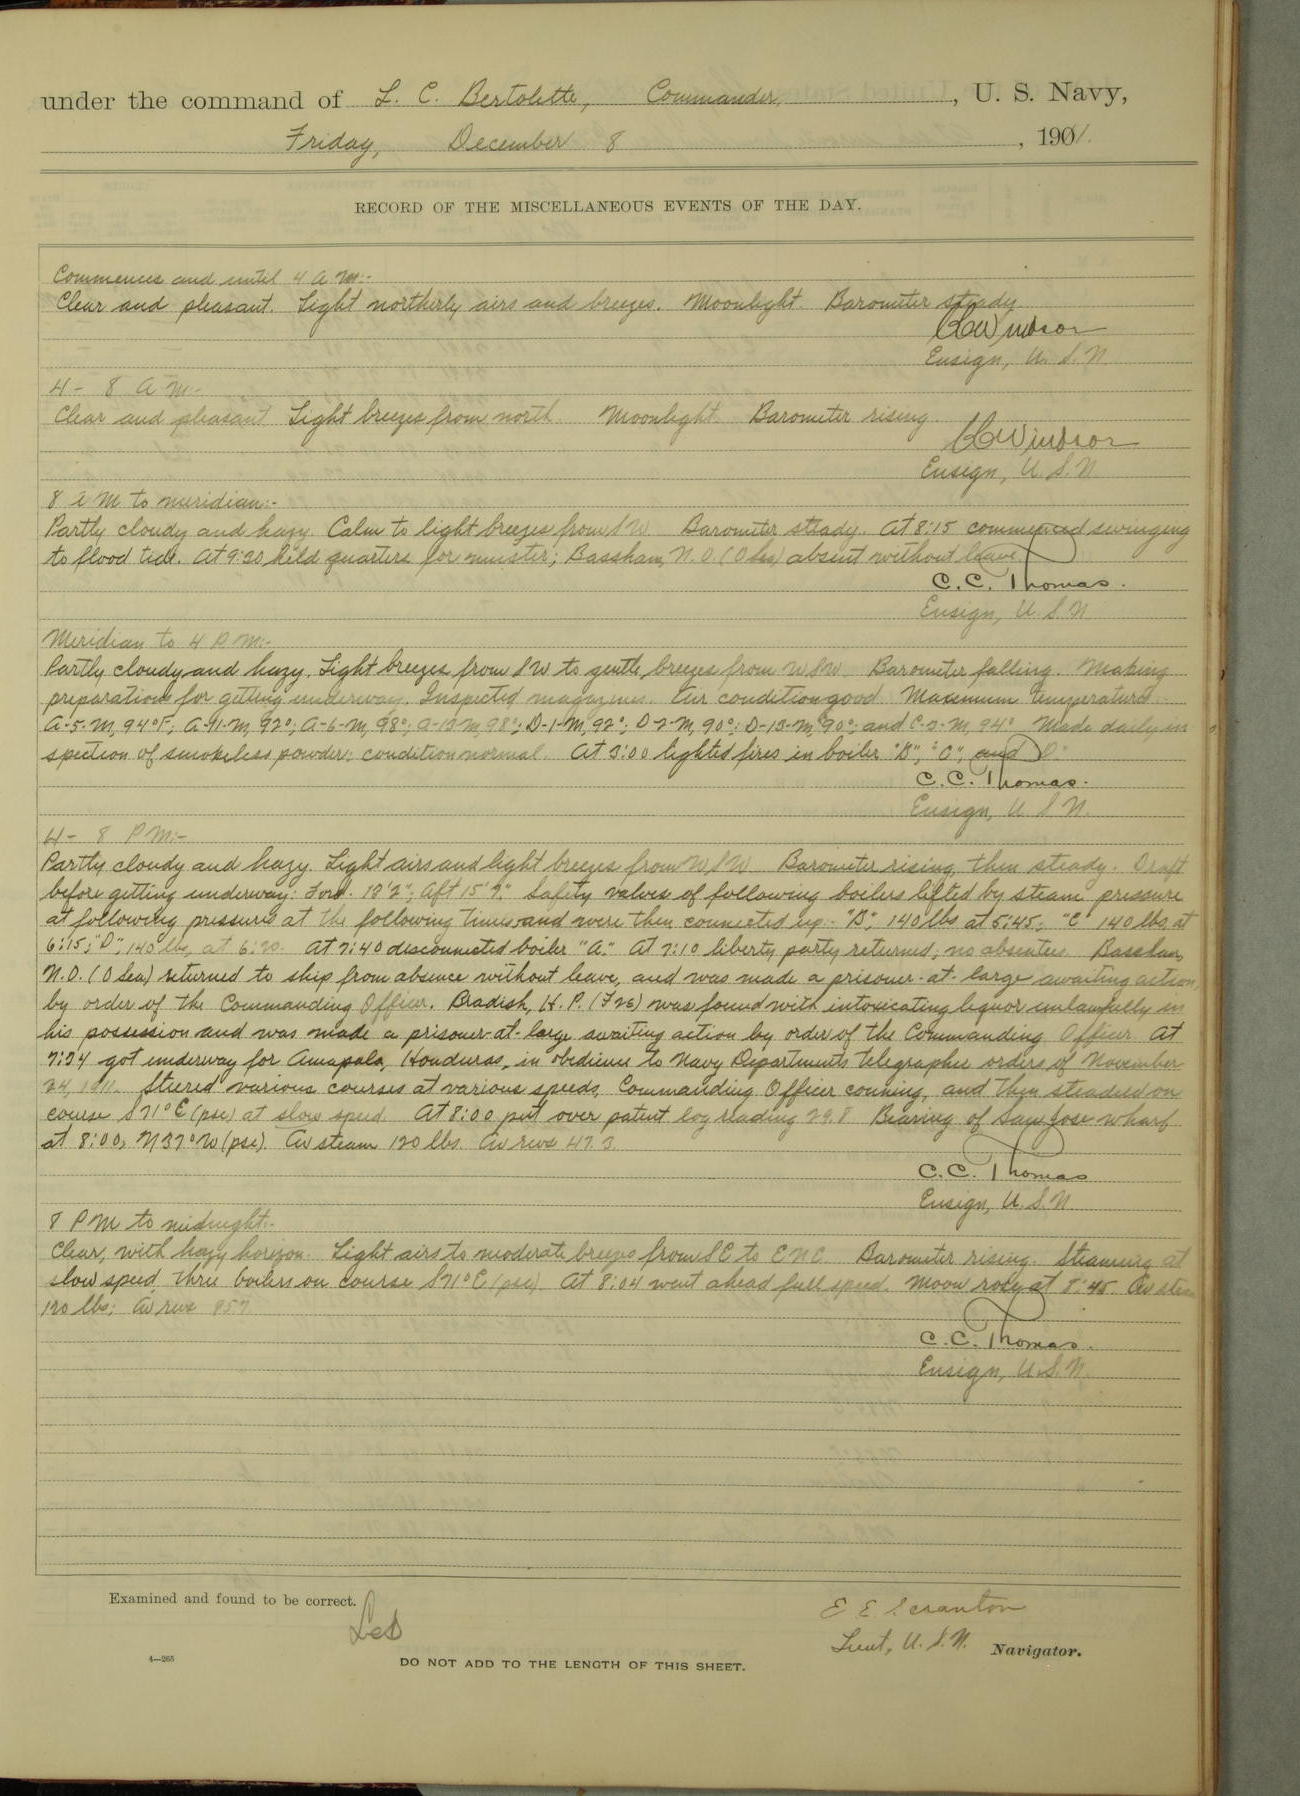 under the command of L. C. Bertolette, Commander, U. S. Navy,
Friday, December 8, 1901.
RECORD OF THE MISCELLANEOUS EVENTS OF THE DAY.
Commences and until 4 A M:-
Clear and pleasant. Light northerly airs and breezes. Moonlight. Barometer steady
Windsor
Ensign, U. S. N
4 - 8 A M:-
Clear and pleasant Light breezes from north. Moonlight. Barometer rising
Windsor
Ensign, U. S. N.
8 A M to meridian:-
Partly cloudy and hazy. Calm to light breezes from SW. Barometer steady. At 8:15 commenced swinging
to flood tide. At 9:30 held quarters for muster; Bassham, N. O. (O Sea) absent without leave.
C. C. Thomas.
Ensign, U. S. N
Meridian to 4 P M:-
Partly cloudy and hazy. Light breezes from SW to gentle breezes from WSW. Barometer falling. Making
preparations for getting underway. Inspected magazines. Air condition good Maximum temperatures
A-5-M, 94°F; A-11-M, 92°; A-6-M, 98°; A-13-M, 98°; D-1-M, 92°; D-2-M, 90°; D-13-M, 90°; and C-3-M, 94° Made daily in
spection of smokeless powder: condition normal. At 3:00 lighted fires in boiler "B", "C", and "D."
C. C. Thomas.
Ensign, U. S. N.
4 - 8 P M:-
Partly cloudy and hazy. Light airs and light breezes from WSW Barometer rising, then steady. Draft
before getting underway: Ford. 18'2"; Aft 15'2". Safety valves of following boilers lifted by steam pressure
at following pressures at the following times and were then connected up. "B", 140 lbs at 5:45; "C" 140 lbs, at
6:15; "D", 140 lbs, at 6:20. At 7:40 disconnected boiler "A". At 7:10 liberty party returned, no absentees. Bassham,
N. O. (O Sea) returned to ship from absence without leave, and was made a prisoner-at-large awaiting action,
by order of the Commanding Officer. Bradish, H. P. (F2c) was found with intoxicating liquor unlawfully in
his possession and was made a prisoner-at-large awaiting action by order of the Commanding Officer. At
7:24 got underway for Amapala, Honduras, in obedience to Navy Departments telegraphic orders of November
24, 1911. Steered various courses at various speeds, Commanding Officer conning, and then steadied on
course S71°E (psc) at slow speed. At 8:00 put over patent log reading 29.8 Bearing of San Jose wharf
at 8:00, N37°W (psc). Av steam 120 lbs. Av revs 47.3
C. C. Thomas
Ensign, U. S. N
8 P M to midnight:-
Clear, with hazy horizon. Light airs to moderate breezes from SE to ENE Barometer rising. Steaming at
slow speed, three boilers on course S71°E (psc). At 8:04 went ahead full speed. Moon rose at 8:45. Av steam
120 lbs; Av revs 85.7
C. C. Thomas.
Ensign, U. S. N.
Examined and found to be correct.
LCB
E E Scranton
Lieut, U. S. N. Navigator.
4—265
DO NOT ADD TO THE LENGTH OF THIS SHEET.